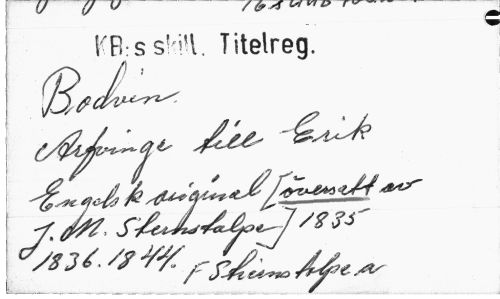 KB:s skill. Titelreg.
Bodvin.
Arfvinge till Erik
Engelsk original [översatt av
J. M. Sternstolpe] 1835
1836. 1844.
F Stiernstolpe a